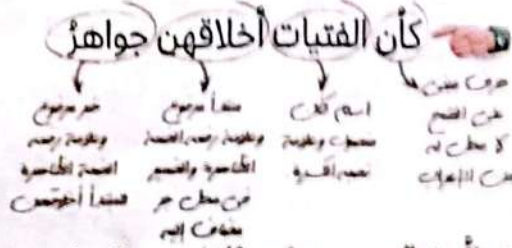 كأن الفتيات أخلاقهن جواهرُ
حرف مبني
على الفتح
لا محل له
من الإعراب
اسم كأن
منصوب وعلامة
نصبه الكسرة
مبتدأ مرفوع
وعلامة رفعه الضمة
الظاهرة والضمير
في محل جر
مضاف إليه
خبر مرفوع
وعلامة رفعه
الضمة الظاهرة
للمبتدأ أخلاقهن